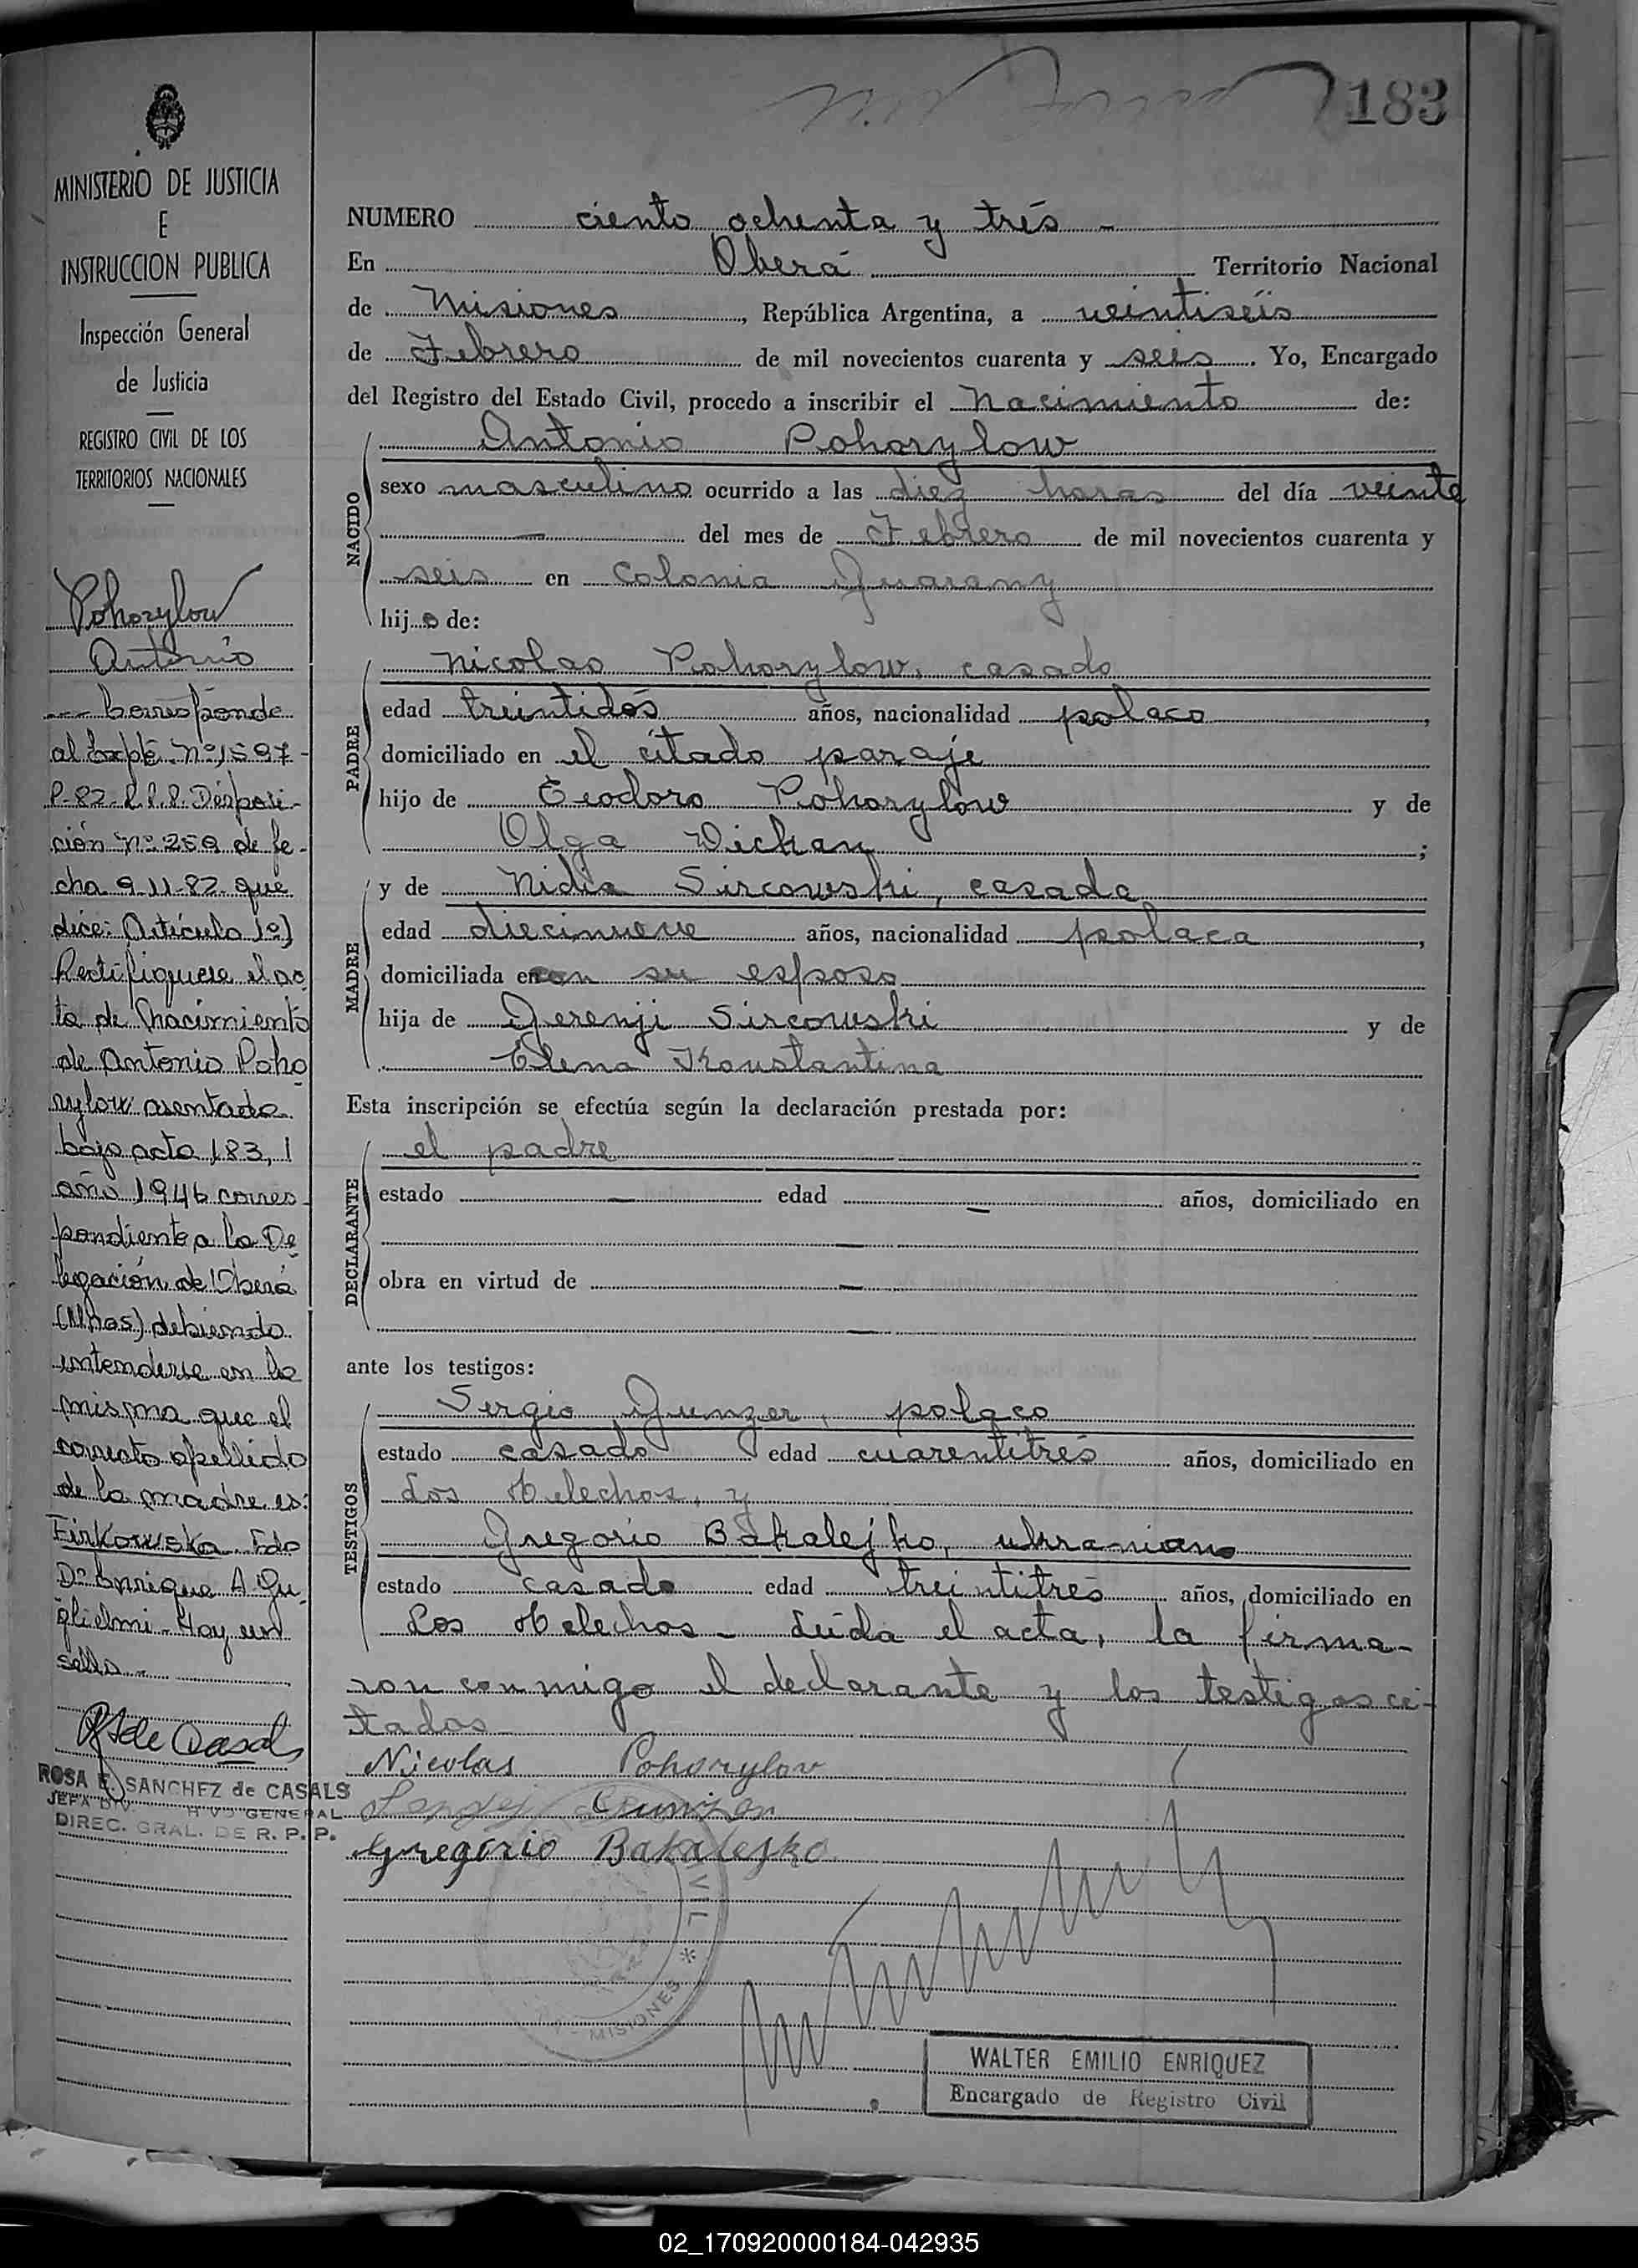 183
MINISTERIO DE JUSTICIA
E
INSTRUCCION PUBLICA
Inspección General
de Justicia
REGISTRO CIVIL DE LOS
TERRITORIOS NACIONALES
Pohorylow
Antonio
--- Corresponde
al Expte. Nº 1597-
P-82-R.P.P. Disposi-
ción Nº 259 de fe-
cha 9-11-82 que
dice: Artículo 1º)
Rectifiquese el ac-
ta de Nacimiento
de Antonio Poho
rylow asentada
bajo acta 183, I
año 1946 corres-
pondiente a la De
legación de Oberá
(Mnes) debiendo
entenderse en la
misma que el
correcto apellido
de la madre es:
Firkowska. Fdo
Dº Enrique A. Gu
glielmi - Hay un
sello -
ROSA E. SANCHEZ de CASALS
JEFA DIV. GENERAL
DIREC. GRAL. DE R. P. P.
NUMERO ciento ochenta y trés -
En Oberá Territorio Nacional
de Misiones, República Argentina, a veintiséis
de Febrero de mil novecientos cuarenta y seis. Yo, Encargado
del Registro del Estado Civil, procedo a inscribir el Nacimiento de:
NACIDO
Antonio Pohorylow
sexo masculino ocurrido a las diez horas del día veinte
— del mes de Febrero de mil novecientos cuarenta y
seis en Colonia Guarany
hijo de:
PADRE
Nicolas Pohorylow, casado
edad treintidós años, nacionalidad polaco,
domiciliado en el citado paraje
hijo de Teodoro Pohorylow y de
Olga Dickan;
MADRE
y de Nidia Sircowski, casada
edad diecinueve años, nacionalidad polaca,
domiciliada en con su esposo
hija de Jerenji Sircowski y de
Elena Konstantina
Esta inscripción se efectúa según la declaración prestada por:
DECLARANTE
el padre
estado — edad — años, domiciliado en
—
obra en virtud de —
—
ante los testigos:
TESTIGOS
Sergio Gunzer, polaco
estado casado edad cuarentitrés años, domiciliado en
Los Helechos, y
Gregorio Bakalejko, ukraniano
estado casado edad treintitrés años, domiciliado en
Los Helechos - Leída el acta, la firma-
ron conmigo el declarante y los testigos ci-
tados
Nicolas Pohorylow
Gregorio Bakalejko
VIL * MISIONES
WALTER EMILIO ENRIQUEZ
Encargado de Registro Civil
02_170920000184-042935